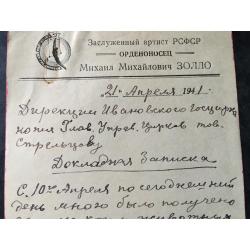 Заслуженный артист РСФСР
ОРДЕНОНОСЕЦ
Михаил Михайлович ЗОЛЛО
„21" Апреля 1941
Дирекции Ивановского Госцирка
копия Глав. Управ. Цирков тов.
Стрельцову
Докладная Записка
С 10го Апреля по сегоднешний
день много было получено